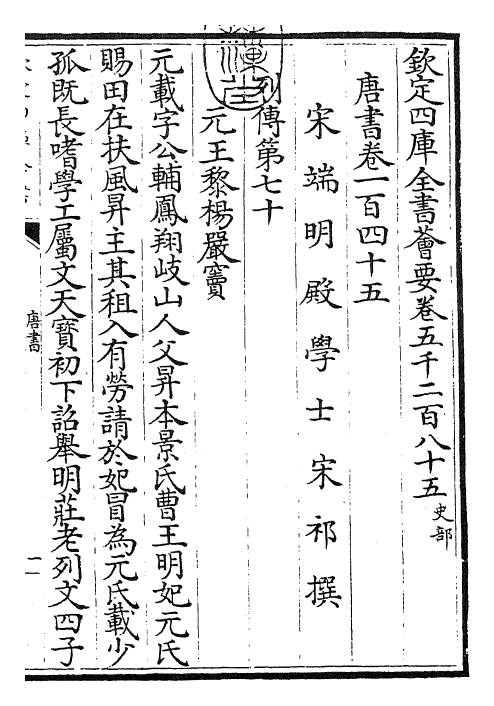 欽定四庫全書薈要卷五千二百八十五史部
唐書卷一百四十五
宋端明殿學士宋祁撰
列傳第七十
元王黎楊嚴竇
元載字公輔鳳翔歧山人父昇本景氏曹王明妃元氏
賜田在扶風昇主其租入有勞請於妃冒為元氏載少
孤既長嗜學工屬文天寶初下詔舉明莊老列文四子
唐書